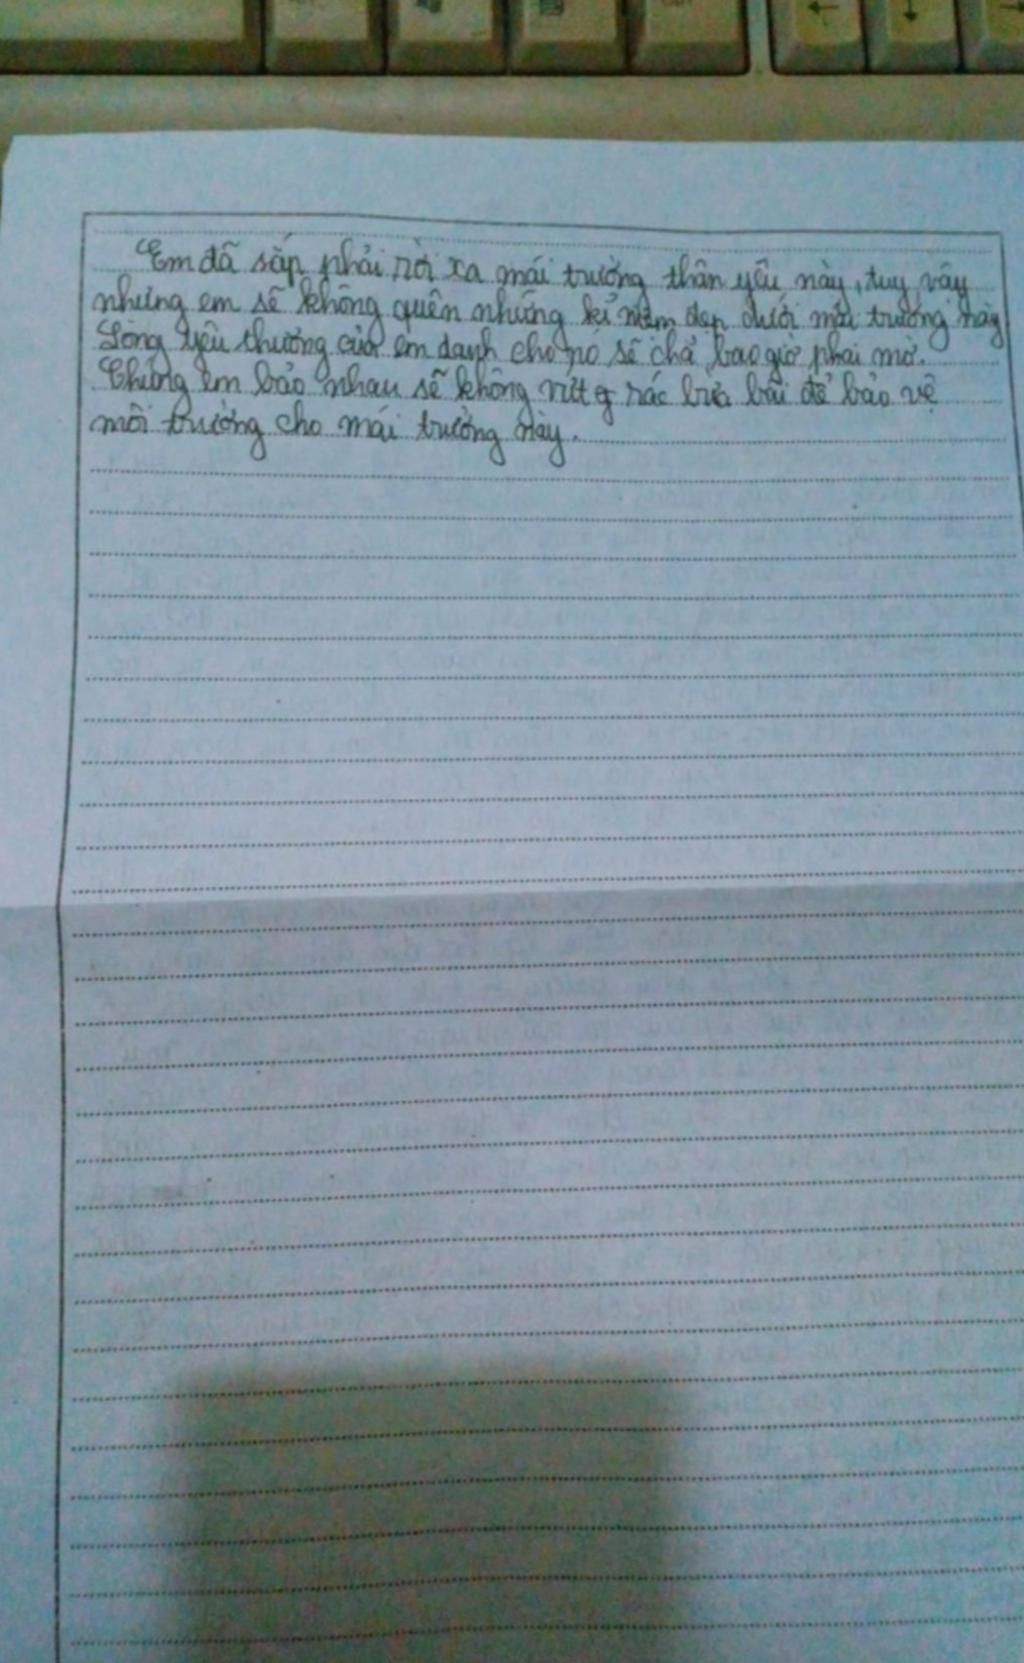 Em đã sắp phải rời xa mái trường thân yêu này, tuy vậy
nhưng em sẽ không quên những kỉ niệm đẹp dưới mái trường này
Lòng yêu thương của em danh cho nó sẽ chả bao giờ phai mờ.
Chúng em bảo nhau sẽ không vứt rác bừa bãi để bảo vệ
môi trường cho mái trường này.